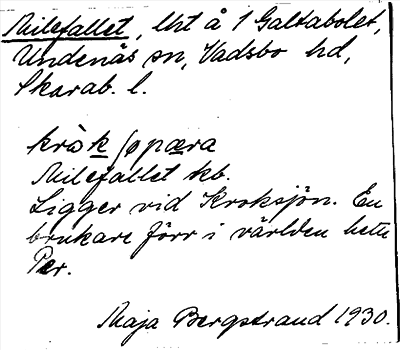 Milefallet, lht å 1 Galtabolet,
Undenäs sn, Vadsbo hd,
Skarab. l.
kràk/opæra
Milefallet kb.
Ligger vid Kroksjön. En
brukare förr i världen hette
Per.
Maja Bergstrand 1930.